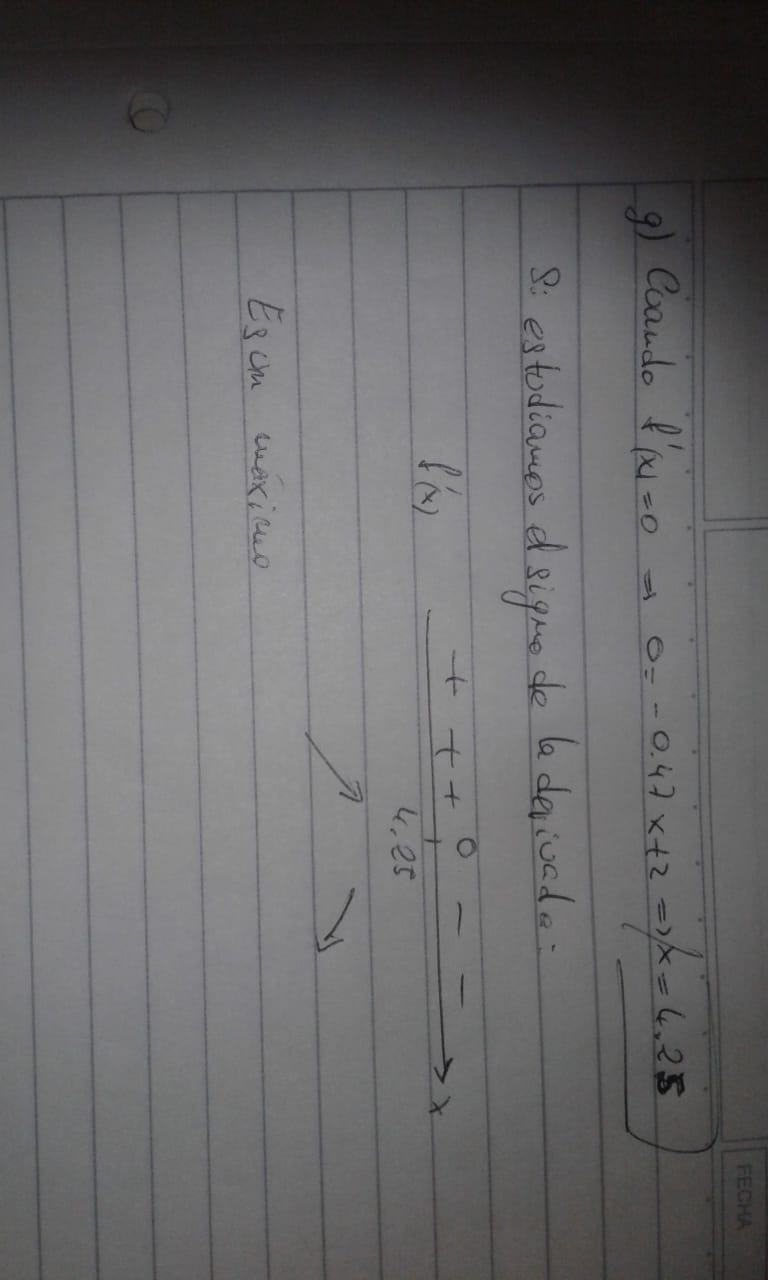 FECHA
g) Cuando f'(x)=0 ⇒ 0=-0.47x+2 ⇒ x=4.25
Si estudiamos el signo de la derivada:
+ + + 0 - -
f'(x) x
4.25
Es un máximo